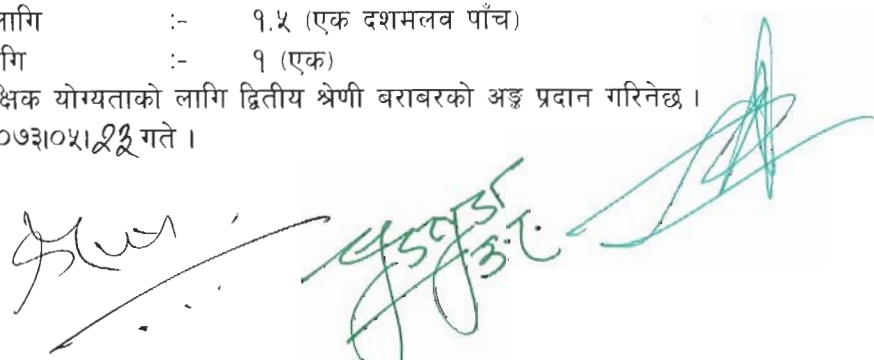 लागि :- १.५ (एक दशमलव पाँच)
गि :- १ (एक)
क्षिक योग्यताको लागि द्वितीय श्रेणी बराबरको अङ्क प्रदान गरिनेछ ।
०७३।०५।२३ गते ।